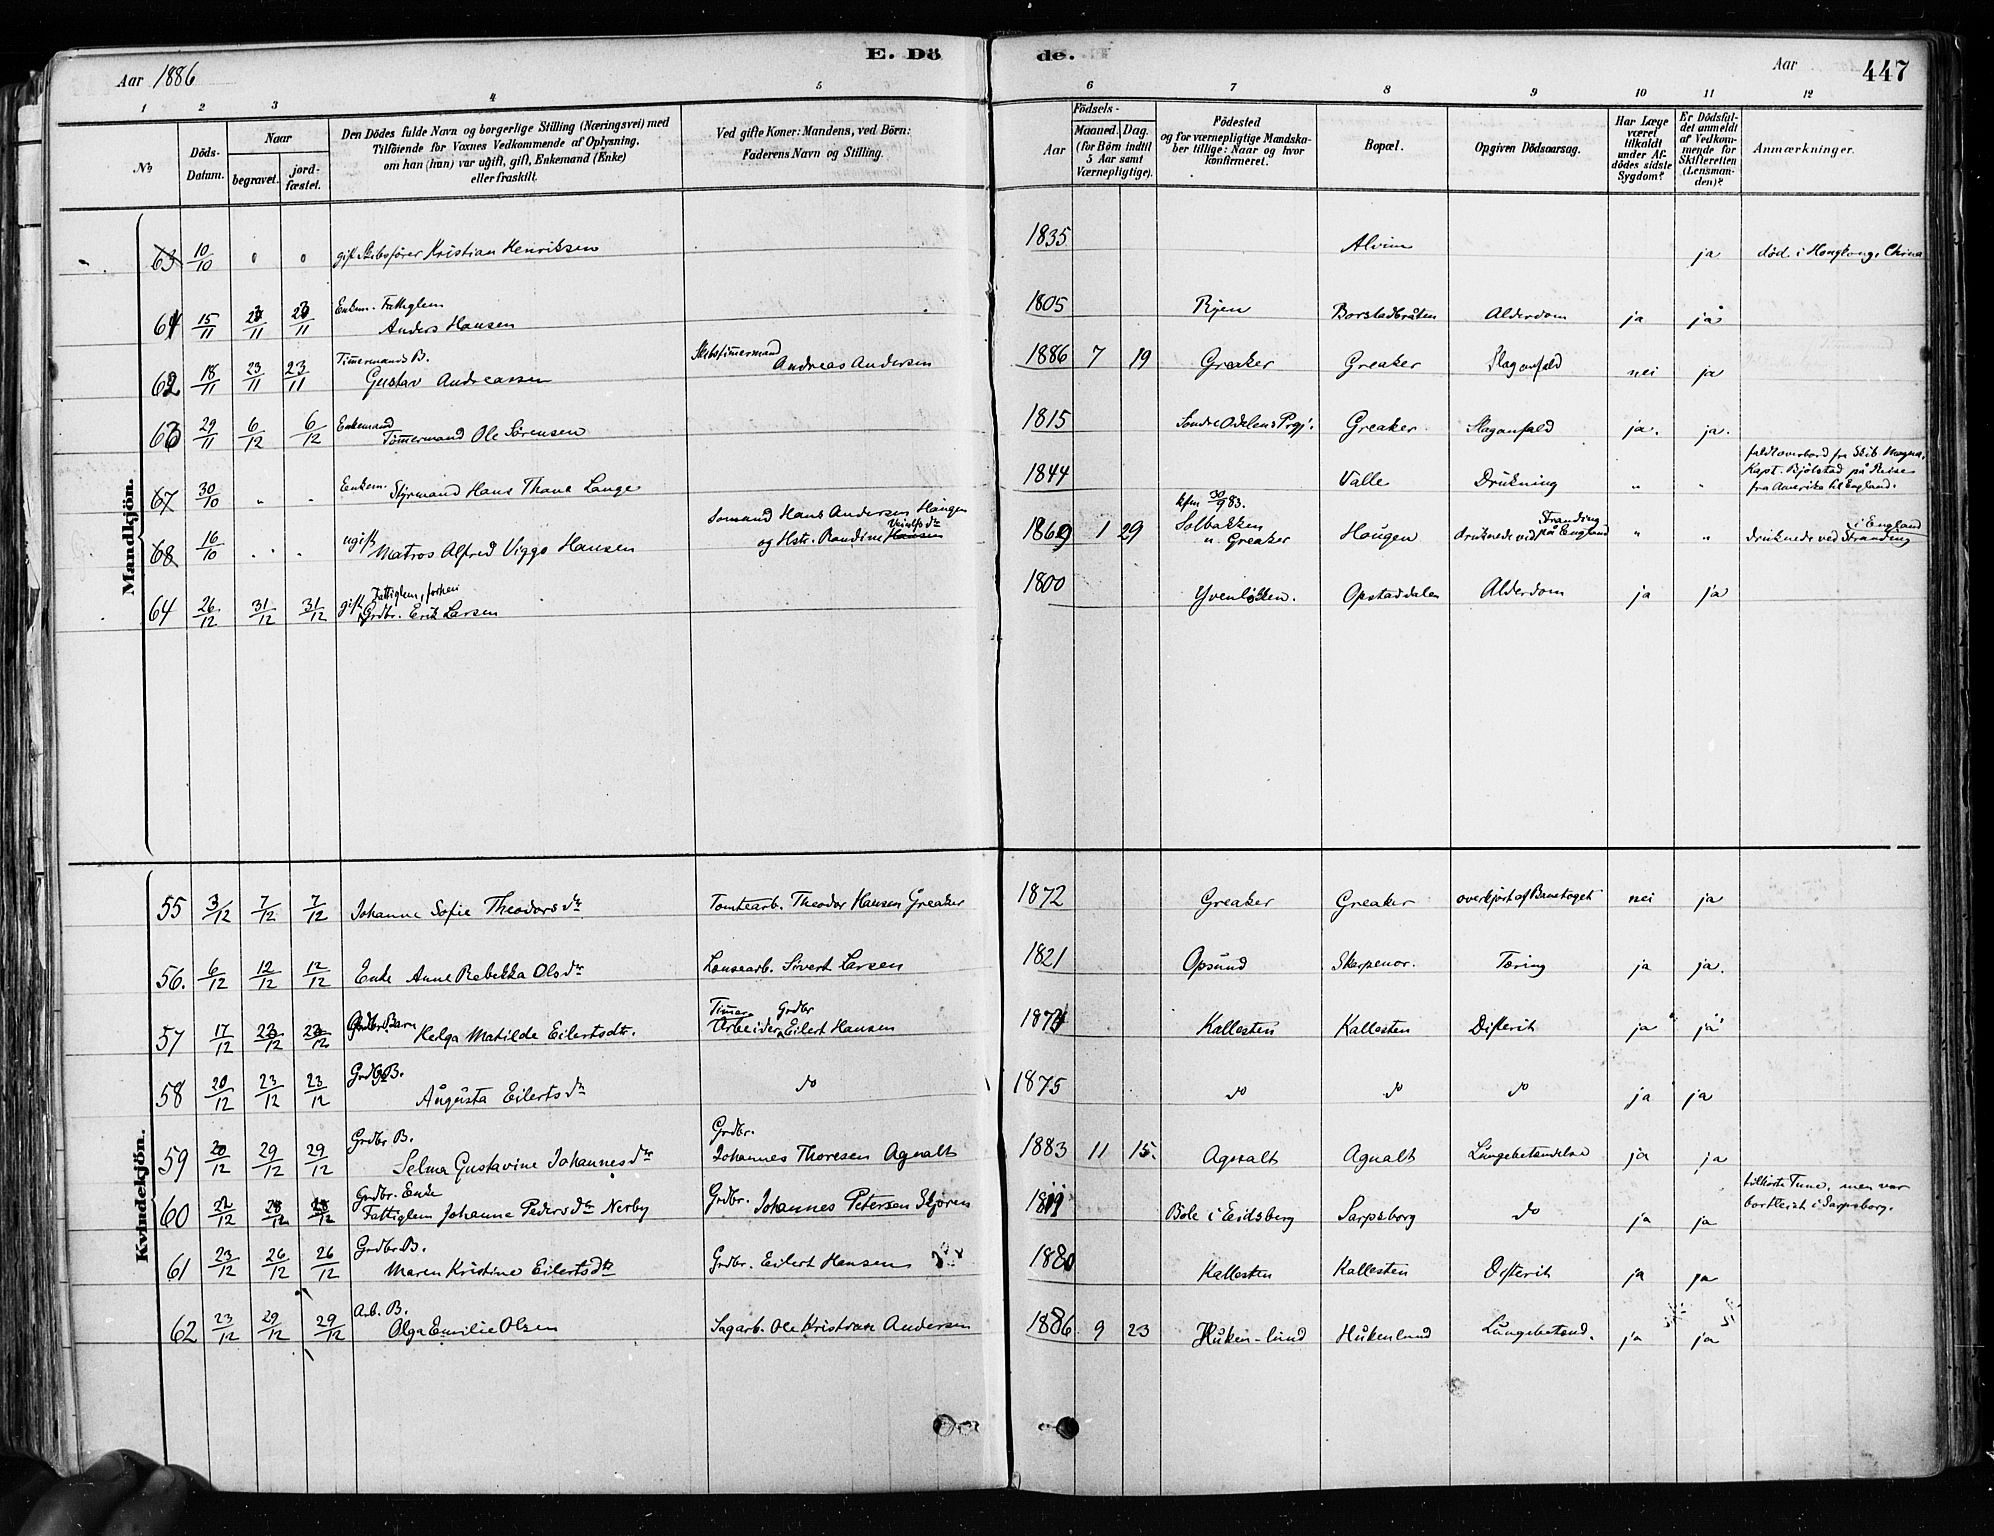 E. Dö de.
Aar 1886 Aar 447
1 2 3 4 5 6 7 8 9 10 11 12
No
Döds-Datum.
Naar begravet. jordfæstet.
Den Dödes fulde Navn og borgerlige Stilling (Næringsvei) med
Tilföiende for Voxnes Vedkommende af Oplysning,
om han (hun) var ugift, gift, Enkemand (Enke)
eller fraskilt.
Ved gifte Koner: Mandens, ved Börn:
Faderens Navn og Stilling.
Födsels-
Aar Maaned. Dag.
(for Börn indtil
5 Aar samt
Værnepligtige).
Födested
og for værnepligtige Mandska-
ber tillige: Naar og hvor
konfirmeret.
Bopæl.
Opgiven Dödsaarsag.
Har Læge
været
tilkaldt
under Af-
dödes sidste
Sygdom?
Er Dödsfal-
det anmeldt
af Vedkom-
mende for
Skifteretten
(Lensman-
den)?
Anmærkninger.
Mandkjön.
63 10/10 " " gift Skibsfører Kristian Henriksen 1835 Alvim ja död i Hongkong, China
61 15/11 23/11 23/11 Enkem. Fattiglem Anders Hansen 1805 Ryen Borstadbråten Alderdom ja ja
62 18/11 23/11 23/11 Timermands B. Gustav Andreassen Skibstimermand Andreas Andersen 1886 7 19 Greaker Greaker Slaganfald nei ja
63 29/11 6/12 6/12 Enkemand Timermand Ole Sørensen 1815 Søndre Odalens Prgj. Greaker Slaganfald ja. ja.
67 30/10 " " Enkem. Styrmand Hans Thane Lange 1844 Valle Drukning " " faldt overbord fra Skib Magna, Kapt. Bjølstad på Reise fra Amerika til England.
68 16/10 " " ugift Matros Alfred Viggo Hansen Sømand Hans Andersen Haugen og Hstr. Randine Hansen 1869 1 29 kfm 30/9 83. Solbakken u. Greaker Haugen druknede ved Stranding på England " " druknede ved Stranding i England
64 26/12 31/12 31/12 gift Fattiglem, forhen Grdbr. Erik Larsen 1800 Yvenløkken. Opstaddalen Alderdom ja ja
Kvindekjön.
55 3/12 7/12 7/12 Johanne Sofie Theodorsdtr Tomtearb. Theodor Hansen Greaker 1872 Greaker Greaker overkjørt af Banetoget nei ja
56. 6/12 12/12 12/12 Enke Anne Rebekka Olsdtr Lensearb. Sivert Larsen 1821 Opsund Skarpenor. Tæring ja ja.
57 17/12 23/12 23/12 Grdbr Barn Helga Matilde Eilertsdtr. Arbeider Grdbr Eilert Hansen 1874 Kallesten Kallesten Difterit ja ja
58 20/12 23/12 23/12 Grdbr B. Augusta Eilertsdtr do 1875 do do do ja ja
59 20/12 29/12 29/12 Grdbr B. Selma Gustavine Johannesdtr Grdbr. Johannes Thoresen Agnalt 1883 11 15. Agnalt Agnalt Lungebetændelse ja ja
60 22/12 28/12 28/12 Grdbr. Enke Fattiglem Johanne Pedersdtr Nerby Grdbr. Johannes Petersen Skjøren 1811 Bøle i Eidsberg Sarpsborg do ja ja tilhørte Tune, men var bortleiet i Sarpsborg.
61 23/12 26/12 26/12 Grdbr B. Maren Kristine Eilertsdtr Grdbr. Eilert Hansen 1880 Kallesten Kallesten Difterit ja ja
62 23/12 29/12 29/12 Arb. B. Olga Emilie Olsen Sagarb. Ole Kristian Andersen 1886 9 23 Huken-lund Hukenlund Lungebetænd. ja ja